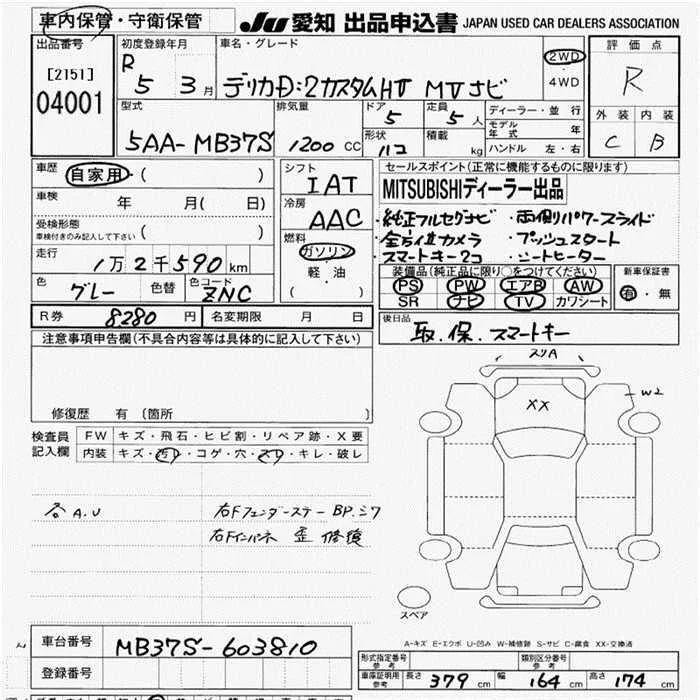 車内保管・守衛保管 JU 愛知 出品申込書 JAPAN USED CAR DEALERS ASSOCIATION
出品番号 初度登録年月 車名・グレード 評価点
[2151] R 5 3月 デリカD:2カスタムHV MVナビ 2WD・4WD R
04001 型式 排気量 ドア 定員 ディーラー・並行 外装 内装
5AA-MB37S 1200 CC 5 5人 モデル年式 年 C B
形状 ハコ 積載 kg ハンドル 左・右
車歴 自家用・( ) シフト IAT セールスポイント(正常に機能するものに限ります)
車検 年 月( 日) 冷房 AAC MITSUBISHIディーラー出品
受検形態 車検付きのみ記入して下さい ( ) 燃料 ・純正フルセグナビ ・両側パワースライド
走行 1万2千590km ガソリン ・全方位カメラ ・プッシュスタート
軽・油 ・スマートキー2コ ・シートヒーター
色 グレー 色替 色コード ZNC ( ) 装備品(純正品に限り○をつけてください) 新車保証書
PS PW エアB AW 有・無
SR ナビ TV カワシート
R券 8280円 名変期限 月 日 後日品
取.保.スマートキー
注意事項申告欄(不具合内容等は具体的に記入して下さい)
スリA
XX
W2
修復歴 有(箇所 )
検査員記入欄 FW キズ・飛石・ヒビ割・リペア跡・X要
内装 キズ・汚レ・コゲ・穴・スレ・キレ・破レ
各A.U 右Fフェンダーステー BP.ミワ
右Fインパネ 歪 修復
スペア
A-キズ E-エクボ U-凹み W-補修跡 S-サビ C-腐食 XX-交換済
車台番号 MB37S-603810
形式指定番号 参考 類別区分番号 参考
登録番号 車庫証明用参考 長さ 379cm 幅 164cm 高さ 174cm